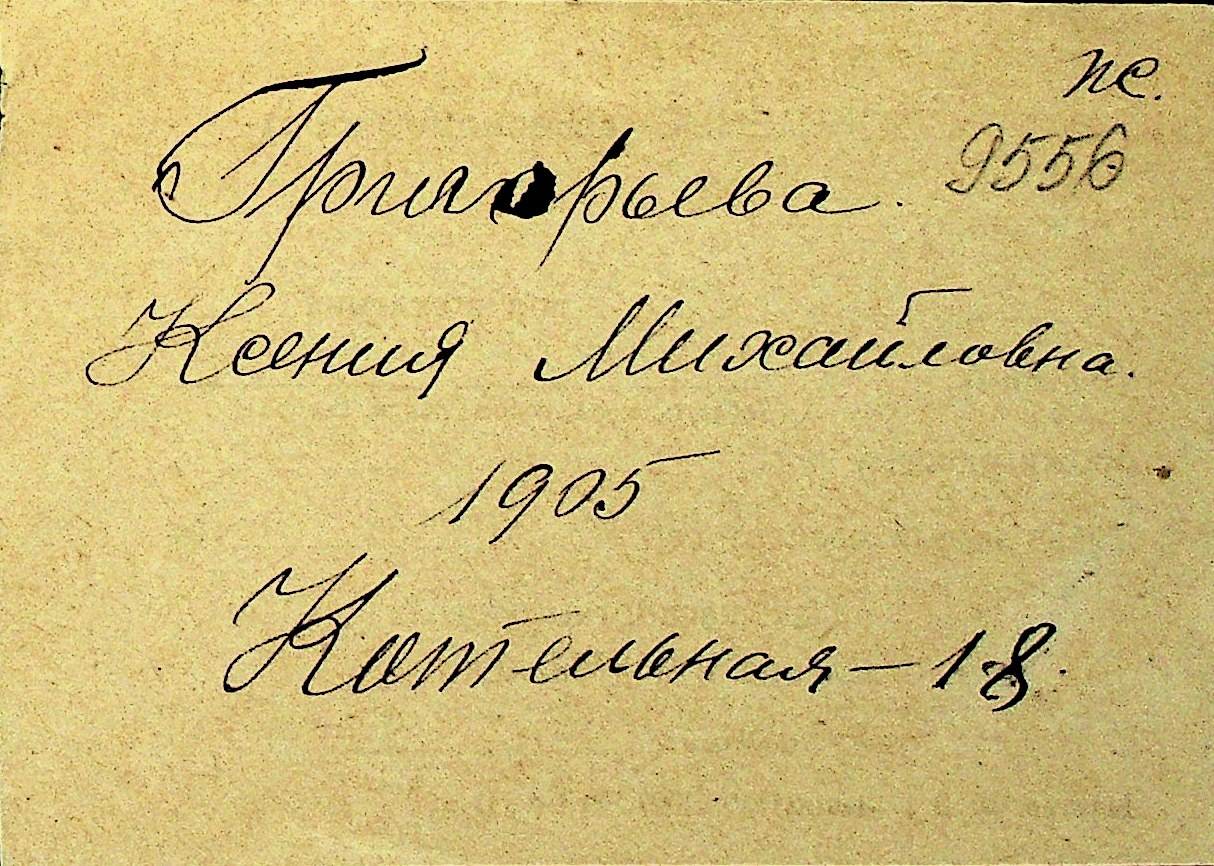 пс.
9556
Григорьева.
Ксения Михайловна.
1905
Котельная – 18.